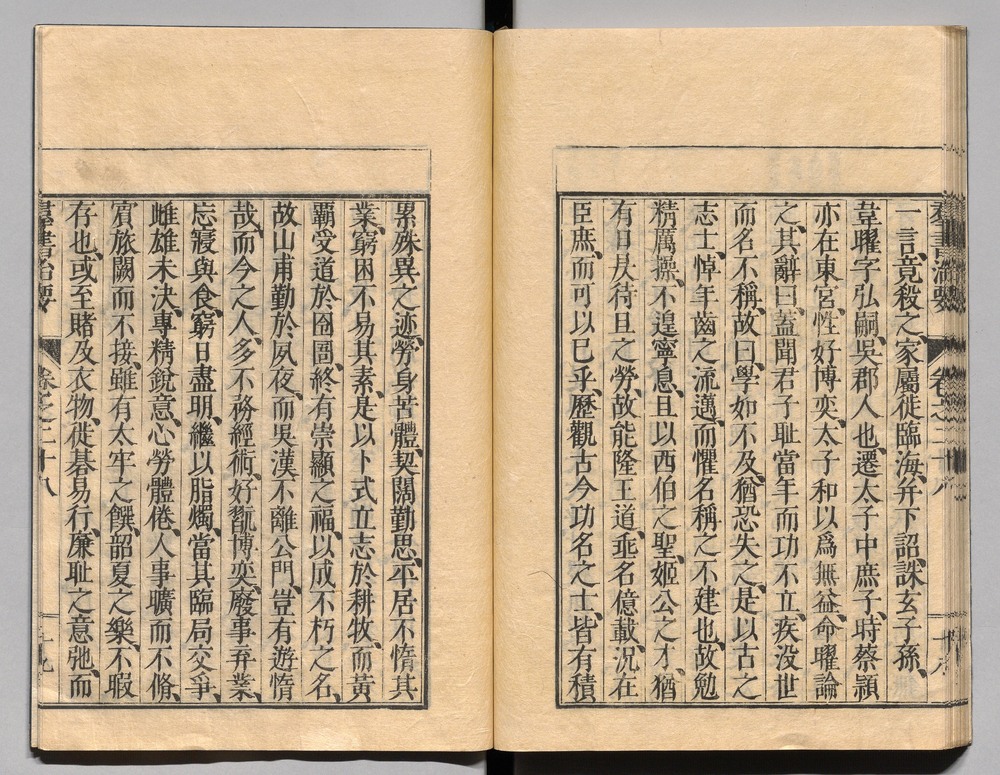 一言、竟殺之、家屬徙臨海、幷下詔、誅玄子孫、
韋曜字弘嗣、吳郡人也、遷太子中庶子、時蔡穎
亦在東宮、性好博奕、太子和以爲無益、命曜論
之、其辭曰、蓋聞君子耻當年而功不立、疾没世
而名不稱、故曰、學如不及、猶恐失之、是以古之
志士、悼年齒之流邁、而懼名稱之不建也、故勉
精厲操、不遑寧息、且以西伯之聖、姬公之才、猶
有日昃待旦之勞、故能隆王道、垂名億載、況在
臣庶、而可以已乎、歷觀古今功名之士、皆有積
累殊異之迹、勞身苦體、契闊勤思、平居不惰其
業、窮困不易其素、是以卜式立志於耕牧、而黃
霸受道於囹圄、終有崇顯之福、以成不朽之名、
故山甫勤於夙夜、而吳漢不離公門、豈有遊惰
哉、而今之人、多不務經術、好翫博奕、廢事弃業、
忘寢與食、窮日盡明、繼以脂燭、當其臨局交爭、
雌雄未決、專精銳意、心勞體倦、人事曠而不脩、
賓旅闕而不接、雖有太牢之饌、韶夏之樂、不暇
存也、或至賭及衣物、徙碁易行、廉耻之意弛、而
羣書治要 卷之二十八 十九